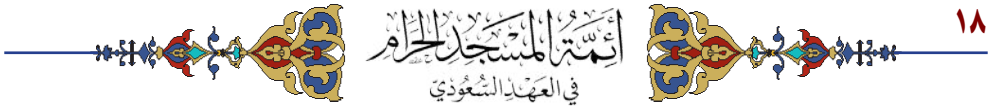 ١٨
أَئِمَّةُ المَسْجِدِ الحَرَامِ
في العَهْدِ السُّعُودِيّ